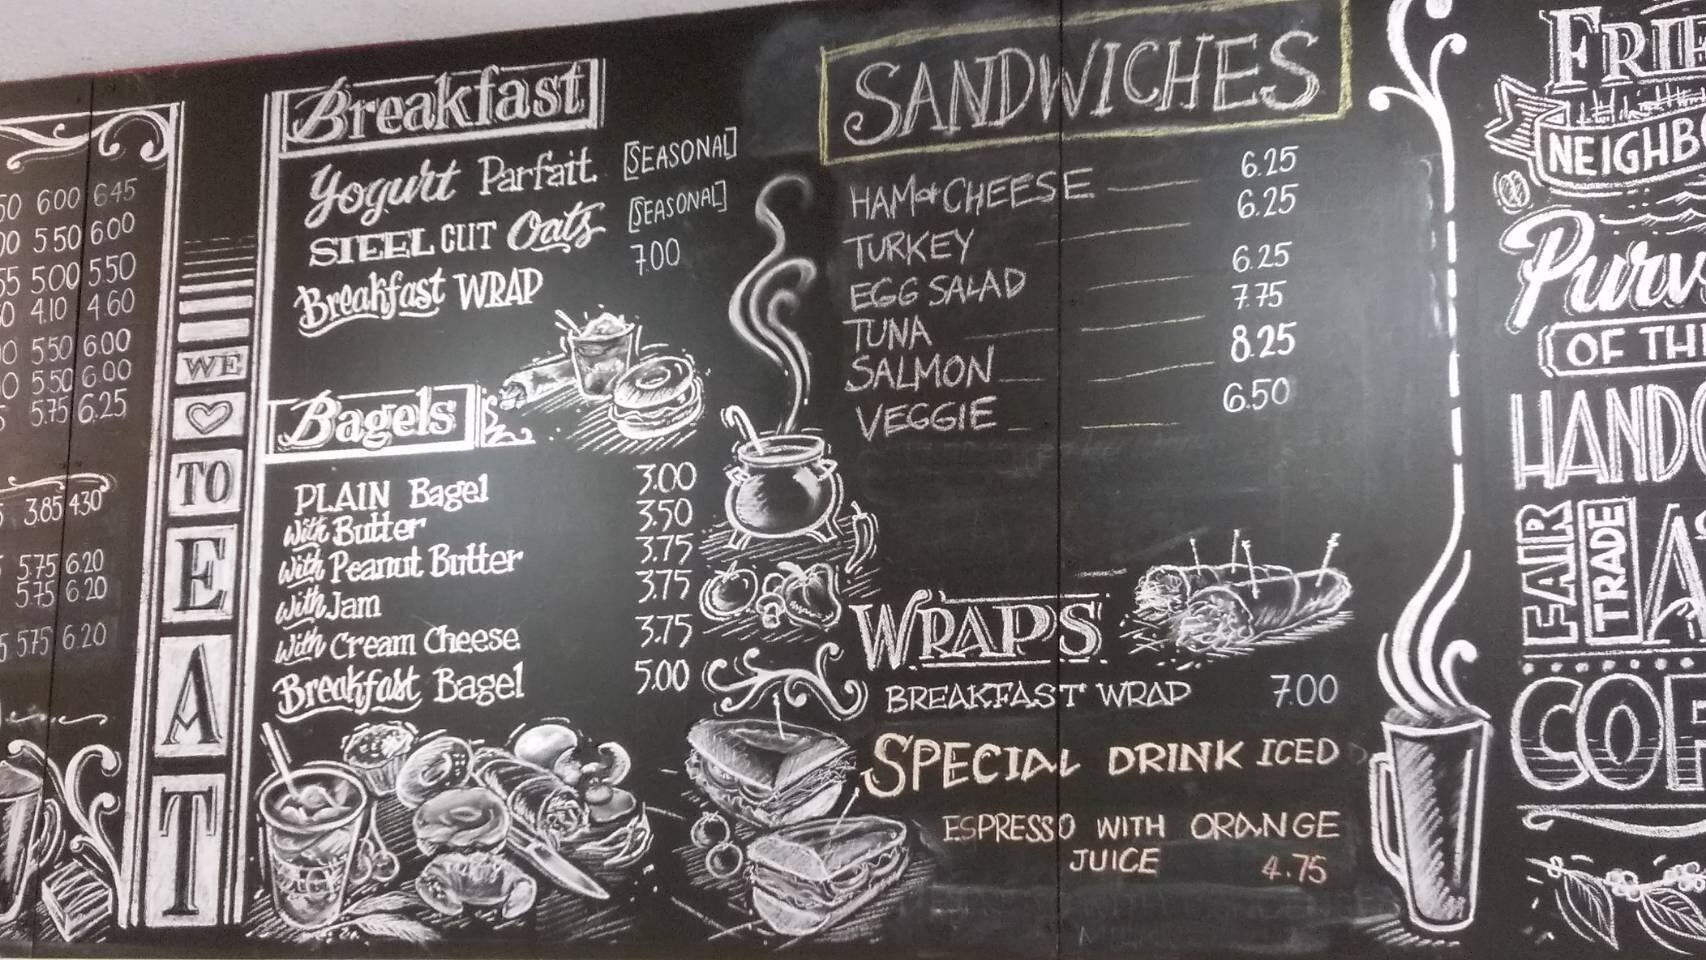 600 645
5.50 6.00
5.00 5.50
4.10 4.60
5.50 6.00
5.50 6.00
5.75 6.25
3.85 4.30
5.75 6.20
5.75 6.20
5.75 6.20
WE
TO
EAT
Breakfast
Yogurt Parfait [SEASONAL]
STEEL CUT Oats [SEASONAL]
Breakfast WRAP 7.00
Bagels
PLAIN Bagel 3.00
with Butter 3.50
with Peanut Butter 3.75
with Jam 3.75
with Cream Cheese 3.75
Breakfast Bagel 5.00
SANDWICHES
HAM & CHEESE 6.25
TURKEY 6.25
EGG SALAD 6.25
TUNA 7.75
SALMON 8.25
VEGGIE 6.50
WRAPS
BREAKFAST WRAP 7.00
SPECIAL DRINK ICED
ESPRESSO WITH ORANGE
JUICE 4.75
OF
FAIR
TRADE